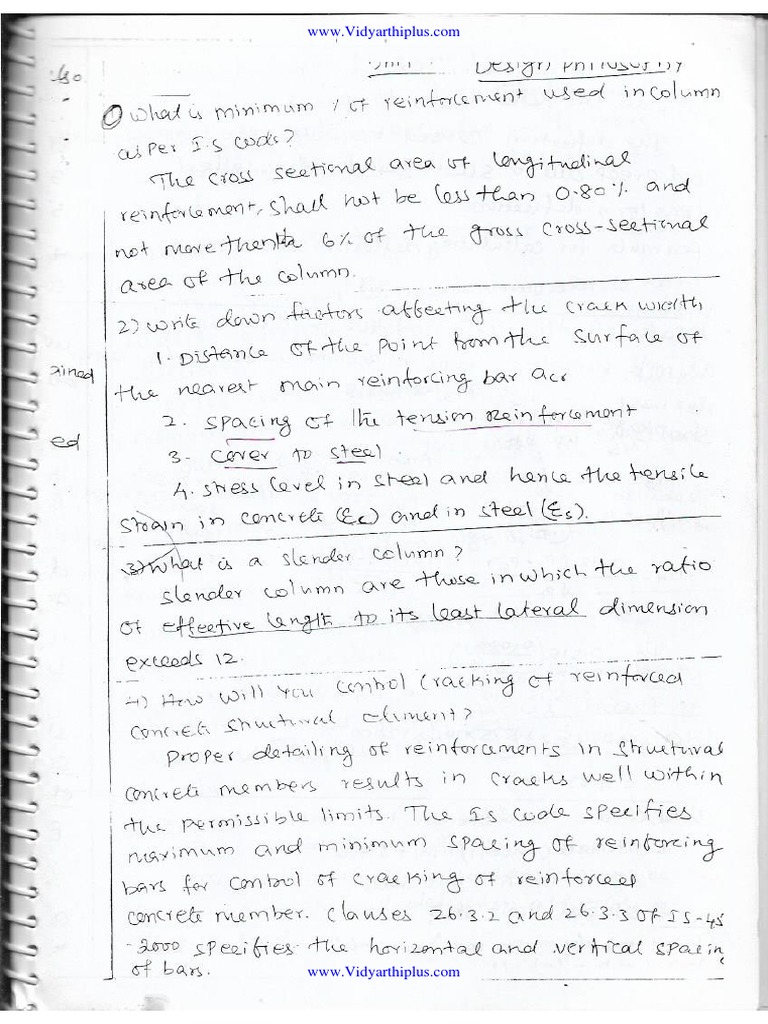 www.Vidyarthiplus.com
Design Philosophy
① What is minimum % of reinforcement used in column
as per I.s code?
The cross sectional area of longitudinal
reinforcement, shall not be less than 0.80% and
not more then 6% of the gross cross-sectional
area of the column.
2) write down factors affecting the crack width
1. Distance of the point from the surface of
ained
the nearest main reinforcing bar acr
2. spacing of the tension reinforcement
ed
3. cover to steel.
4. stress level in steel and hence the tensile
strain in concrete (Ec) and in steel (Es).
3) What is a slender column?
slender column are those in which the ratio
of effective length to its least lateral dimension
exceeds 12.
4) How will you control cracking of reinforced
concrete structural eliment?
Proper detailing of reinforcements in structural
concrete members results in cracks well within
the permissible limits. The Is code specifies
maximum and minimum spacing of reinforcing
bars for control of cracking of reinforced
concrete member. Clauses 26.3.2 and 26.3.3 of IS-45
-2000 specifies the horizontal and vertical spacin
of bars.
www.Vidyarthiplus.com